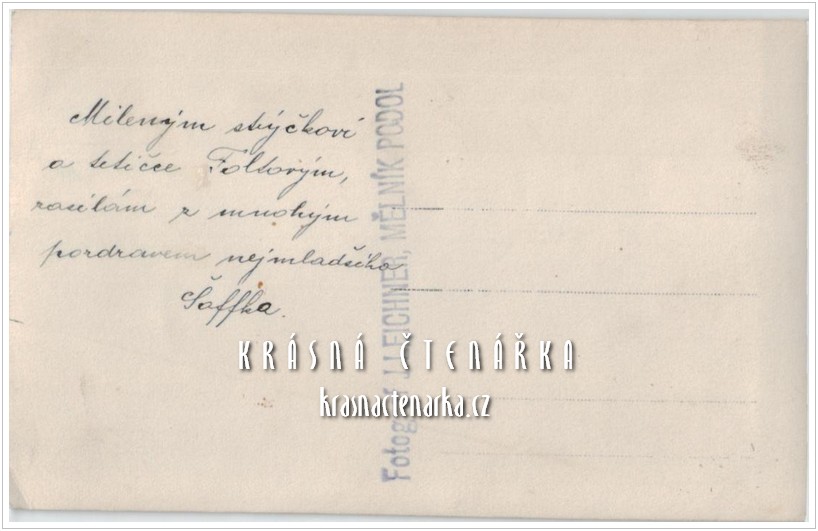 Mileným strýčkovi
a tetičce Foltovým,
zasílám z mnohým
pozdravem nejmladšího
Šaffka.
Fotogr. J. LEICHNER, MĚLNÍK PODOL
KRÁSNÁ ČTENÁŘKA
krasnactenarka.cz